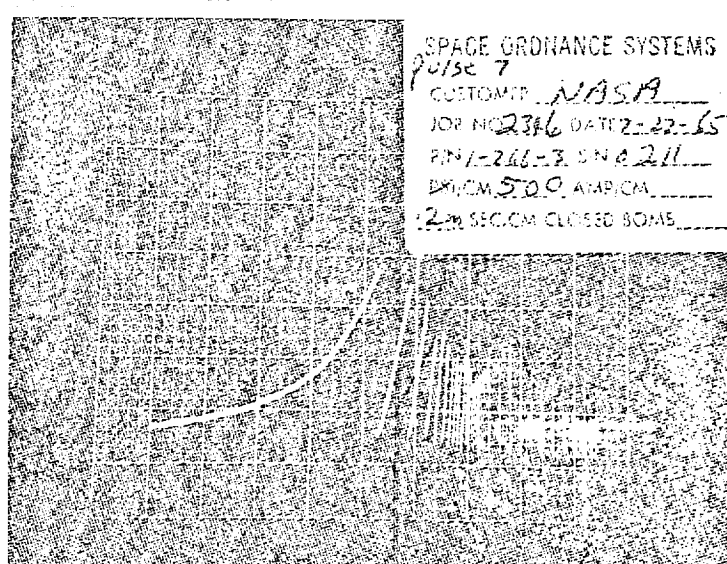 SPACE ORDNANCE SYSTEMS
pulse 7
CUSTOMER NASA
JOB NO 2346 DATE 7-22-65
P/N 1-266-3 S/N 0211
PSI/CM 500 AMP/CM
.2m SEC/CM CLOSED BOMB